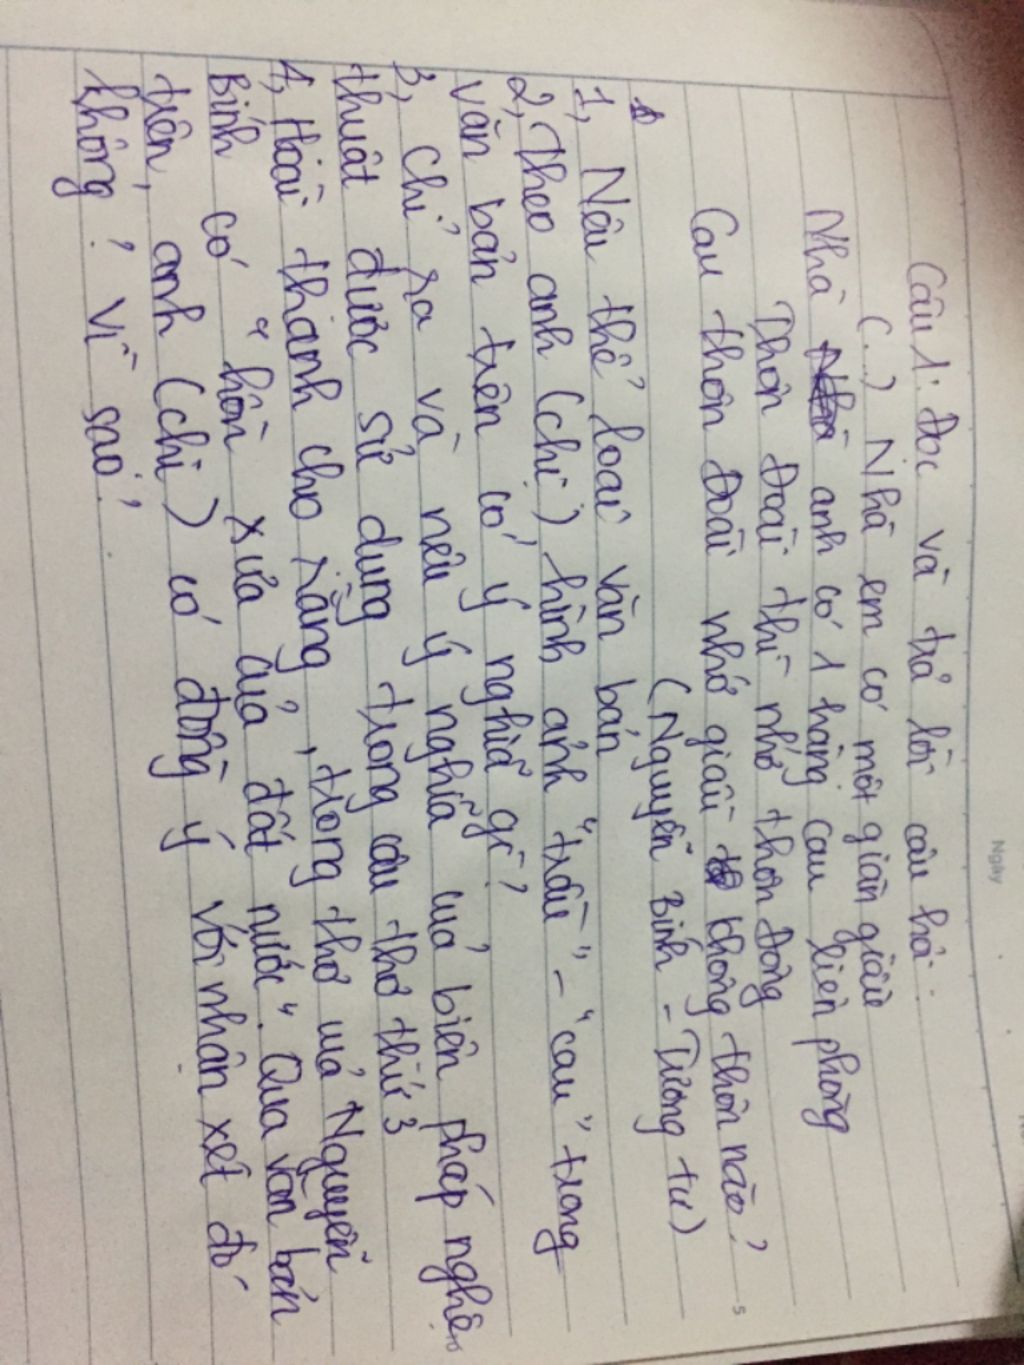 Ngày
Câu 1: Đọc và trả lời câu hỏi:
(...) Nhà em có một giàn giầu
Nhà anh có 1 hàng cau liên phòng
Thôn Đoài thì nhớ thôn Đông
Cau thôn Đoài nhớ giầu không thôn nào?
(Nguyễn Bính - Tương tư)
1, Nêu thể loại văn bản
2, Theo anh (chị) hình ảnh "trầu" - "cau" trong
văn bản trên có ý nghĩa gì?
3, Chỉ ra và nêu ý nghĩa của biện pháp nghệ
thuật được sử dụng trong câu thơ thứ 3
4, Hoài thanh cho rằng, trong thơ của Nguyễn
Bính có "hồn xưa của đất nước". Qua văn bản
trên, anh (chị) có đồng ý với nhận xét đó
không? Vì sao?